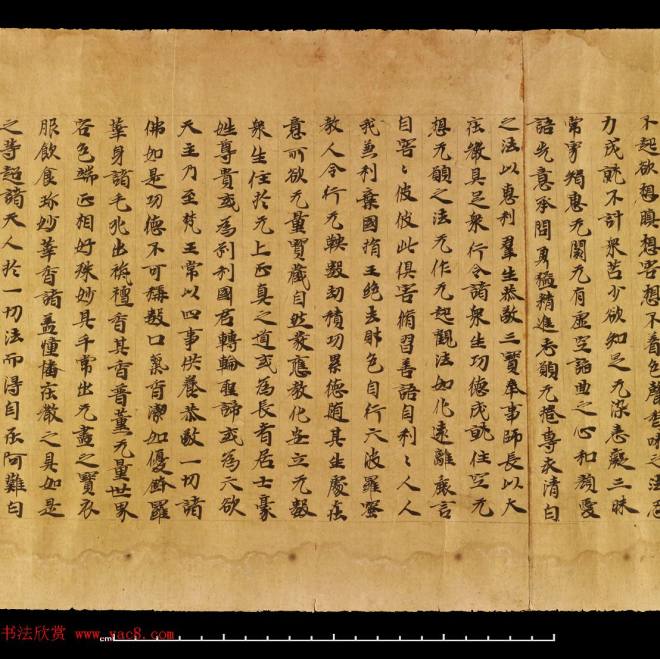 不起欲想瞋想害想不着色聲香味之法忍
力成就不計衆苦少欲知足无染恚癡三昧
常寂智慧无閡无有虛空諂曲之心和顏愛
語先意承問勇猛精進志願无惓專求清白
之法以惠利羣生恭敬三寶奉事師長以大
莊嚴具足衆行令諸衆生功德成就住空无
相无願之法无作无起觀法如化遠離麁言
自害〻彼彼此俱害脩習善語自利〻人人
我兼利棄國捐王絶去財色自行六波羅蜜
教人令行无鞅數劫積功累德隨其生處在
意所欲无量寶藏自然發應教化安立无數
衆生住於无上正真之道或為長者居士豪
姓尊貴或為刹利國君轉輪聖帝或為六欲
天主乃至梵王常以四事供養恭敬一切諸
佛如是功德不可稱數口氣香潔如優鉢羅
華身諸毛孔出栴檀香其香普薰无量世界
容色端正相好殊妙其手常出无盡之寶衣
服飲食珎妙華香諸盖幢幡莊嚴之具如是
之等超諸天人於一切法而得自在阿難白
书法欣赏 www.yac8.com
cm